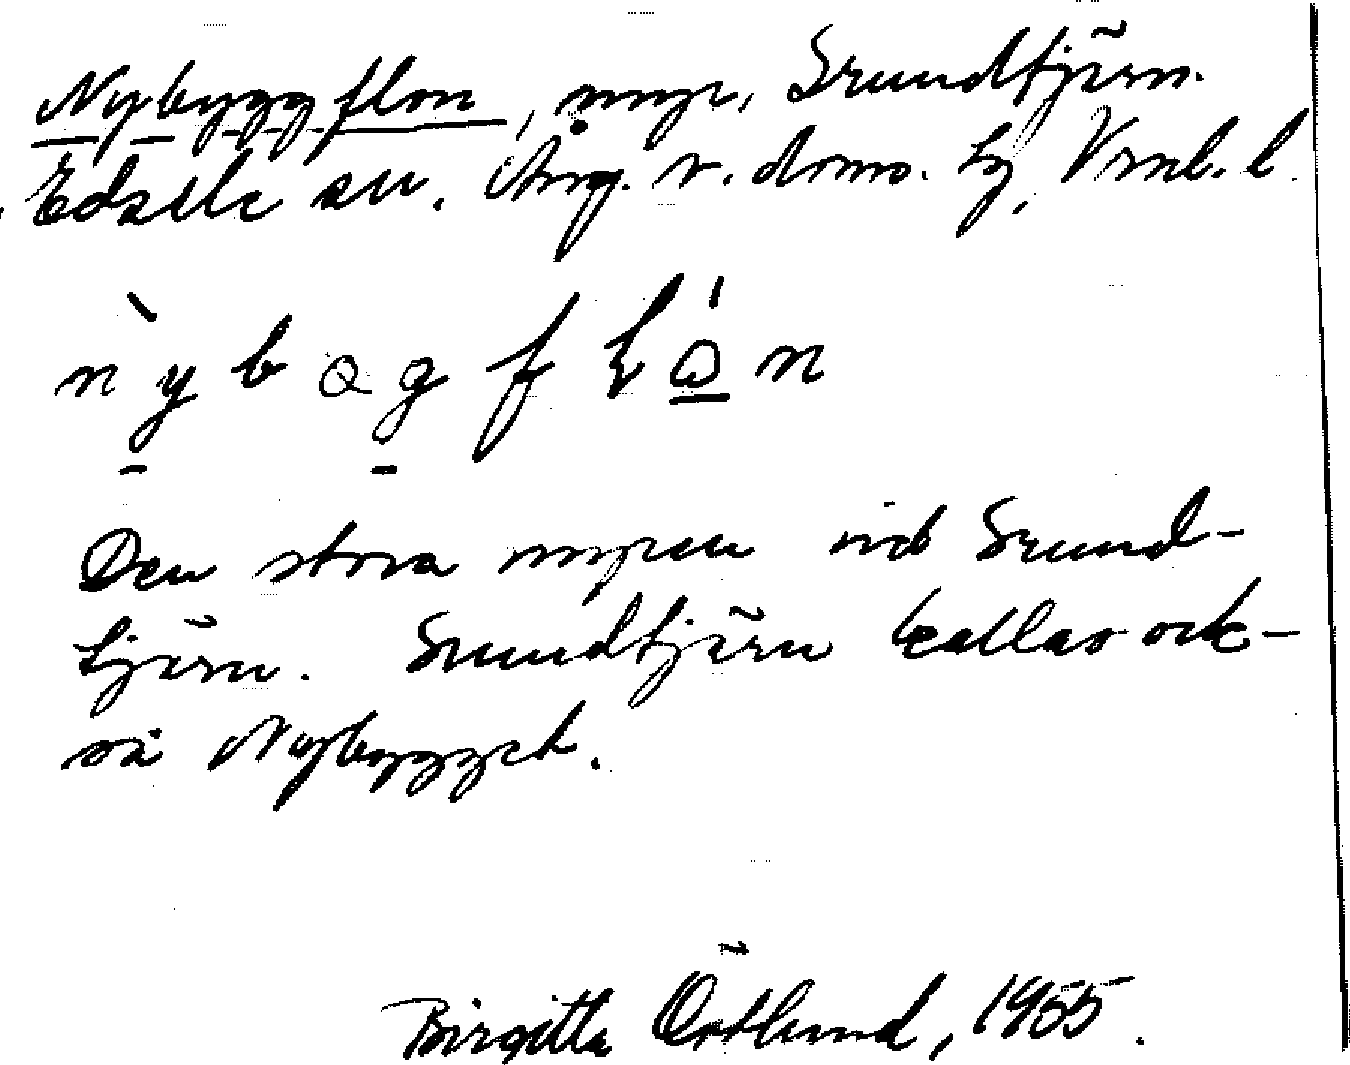 Nybyggflon, myr, Grundtjärn.
Edsele sn. Ång. v. doms. tg, Vrnl. l.
Den stora myren vid Grund-
tjärn. Grundtjärn kallas ock-
så Nybygget.
Birgitta Östlund, 1955.